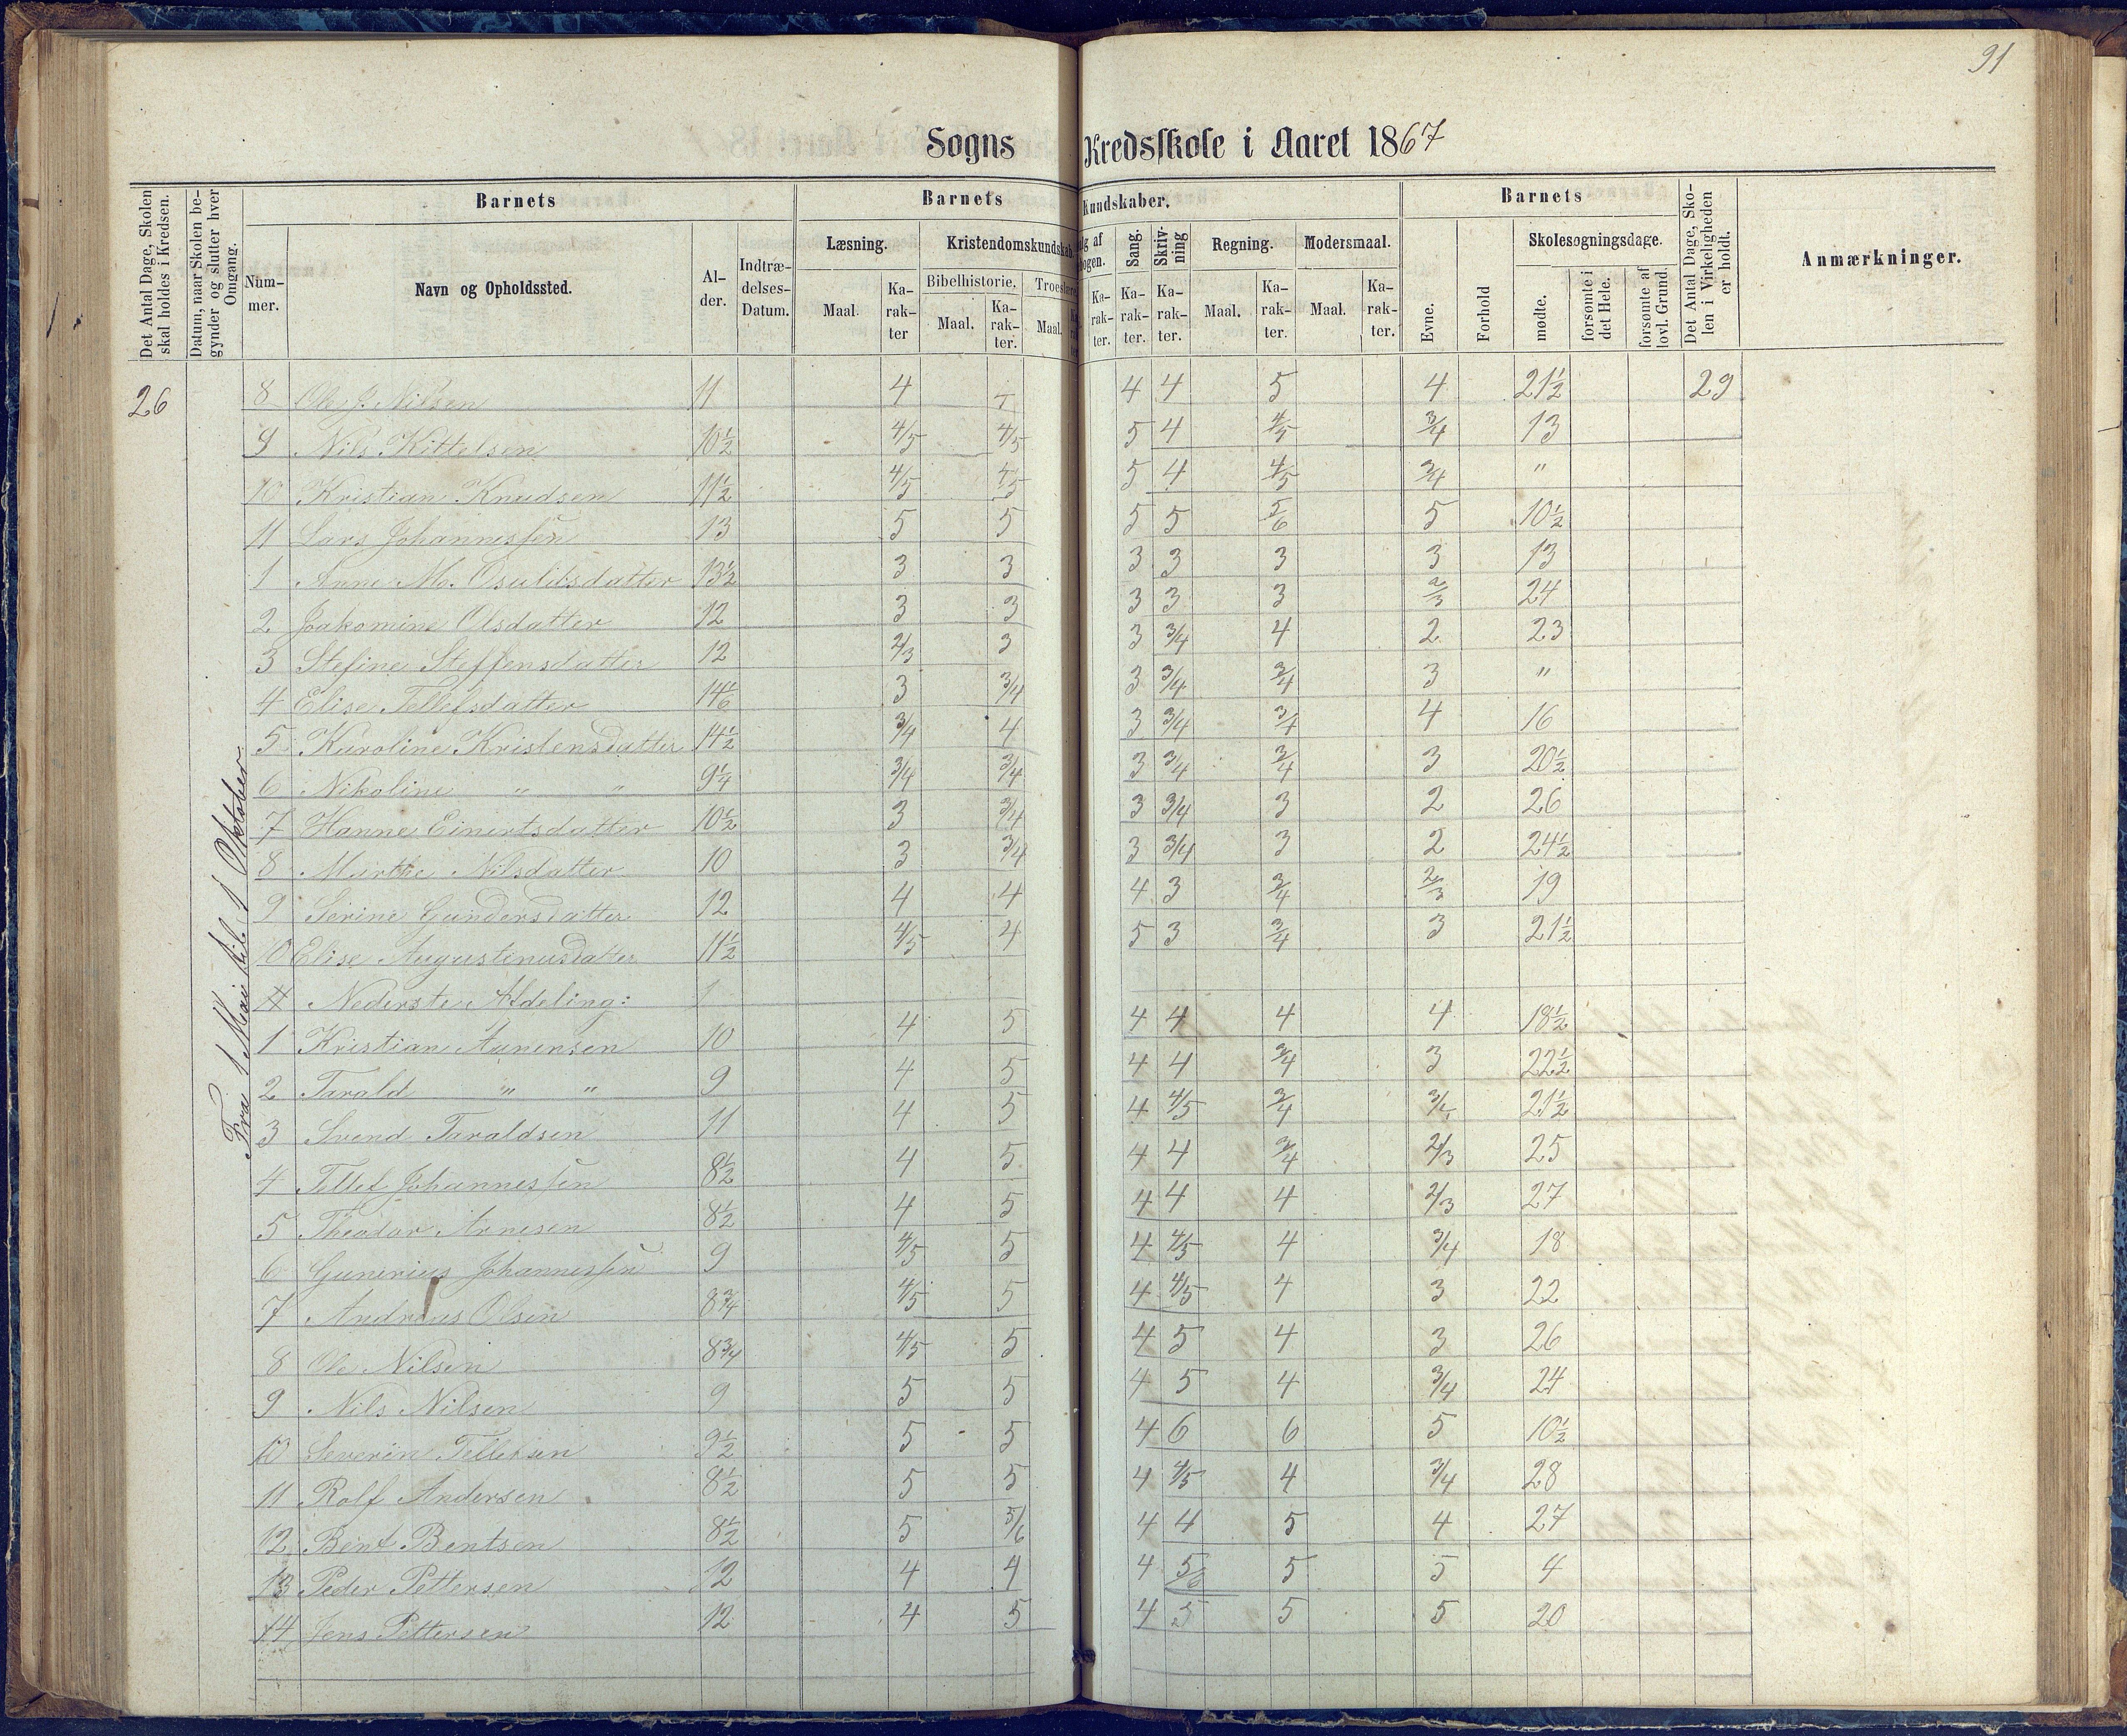 91
Sogns Kredsskole i Aaret 1867
Det Antal Dage, Skolen skal holdes i Kredsen.
Datum, naar Skolen begynder og slutter hver Omgang.
Barnets
Nummer.
Navn og Opholdssted.
Alder.
Indtrædelses-Datum.
Barnets Kundskaber.
Læsning.
Maal.
Karakter
Kristendomskundskab.
Bibelhistorie.
Maal.
Karakter.
Maal.
af
Karakter.
Sang.
Karakter.
Skrivning
Karakter.
Regning.
Maal.
Karakter.
Modersmaal.
Maal.
Karakter.
Barnets
Evne.
Forhold
Skolesøgningsdage.
mødte.
forsømte i det Hele.
forsømte af lovl. Grund.
Det Antal Dage, Skolen i Virkeligheden er holdt.
Anmærkninger.
26
Fra 1 Mai til 1 Oktober
8 Ole J. Nilsen 11 4 4 4 5 4 21½ 29
9 Nils Kittelsen 10½ 4/5 4/5 5 4 4/5 3/4 13
10 Kristian Knudsen 11½ 4/5 4/5 5 4 4/5 3/4 "
11 Lars Johannesen 13 5 5 5 5 5/6 5 10½
1 Anne M. Osuldsdatter 13½ 3 3 3 3 3 3 13
2 Joakomine Olsdatter 12 3 3 3 3 3 2/3 24
3 Stefine Steffensdatter 12 2/3 3 3 3/4 4 2 23
4 Elise Tellefsdatter 3 3/4 3 3/4 3/4 3 "
5 Karoline Kristensdatter 14½ 3/4 4 3 3/4 3/4 4 16
6 Nikoline " " 9¼ 3/4 3/4 3 3/4 3/4 3 20½
7 Hanne Einertsdatter 10½ 3 3/4 3 3/4 3 2 26
8 Marthe Nilsdatter 10 3 3/4 3 3/4 3 2 24½
9 Serine Gundersdatter 12 4 4 4 3 3/4 2/3 19
10 Elise Augustinusdatter 11½ 4/5 4 5 3 3/4 3 21½
Nederste Afdeling:
1 Kristian Aanensen 10 4 5 4 4 4 4 18½
2 Tarald " " 9 4 5 4 4 3/4 3 22½
3 Svend Taraldsen 11 4 5 4 4/5 3/4 21½
4 Tellef Johannessen 8½ 4 5 4 4 3/4 2/3 25
5 Theodor Arnesen 8½ 4 5 4 4 4 2/3 27
6 Gunerius Johannessen 9 4/5 5 4 4/5 4 3/4 18
7 Andreas Olsen 8¾ 4/5 5 4 4/5 4 3 22
8 Ole Nilsen 8¾ 4/5 5 4 5 4 3 26
9 Nils Nilsen 9 5 5 4 5 4 3/4 24
10 Severin Tellefsen 9½ 5 5 4 6 6 5 10½
11 Rolf Andersen 8½ 5 5 4 4/5 4 3/4 28
12 Bent Bentsen 8½ 5 5/6 4 4 5 4 27
13 Peder Pettersen 12 4 4 4 5/6 5 5 4
14 Jens Pettersen 12 4 5 4 5 5 5 20